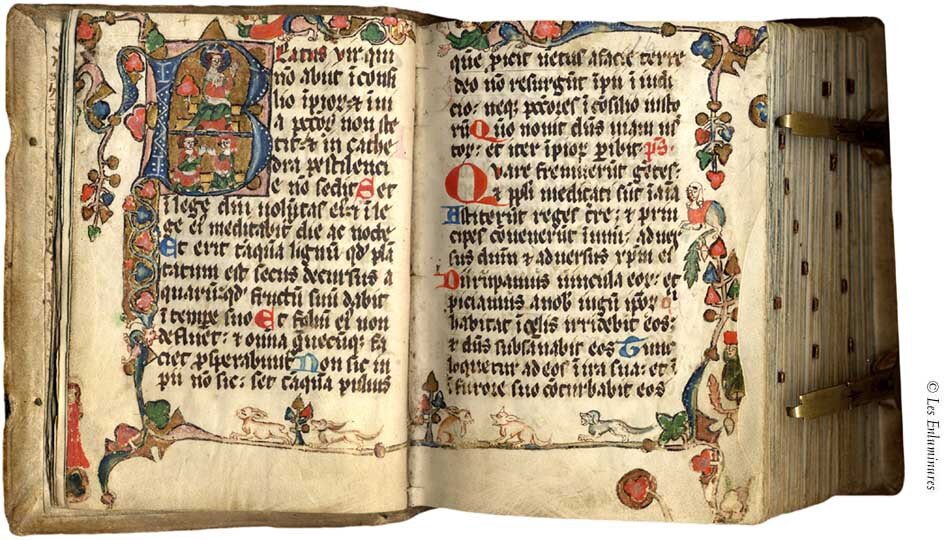 Beatus vir qui
nō abiit ī consi
lio īpior & in ui
a pccor non ste
tit· & in cathe
dra pestilenci
e nō sedit Set
ī lege dni uolūtas ei & ī le
ge ei meditabit die ac nocte
Et erit tāqua lignū qd pla
tatum est secus decursus a
quarū· qd fructū suū dabit
ī tempe suo Et foliū ei non
defluet· & omnia quecūq; fa
ciet psperabunt Non sic im
pii nō sic· set tāqua puluis
quē picit uetus a facie terre
deo nō resurgūt īpii ī iudi
cio· neq; pccores ī cosilio iusto
rū Qno nouit dūs uiam ius
tor· et iter īpior pibit ps
Quare fremuerūt gētes·
& ppli meditati sūt īaīa
Astiterūt reges tre· & prin
cipes couenerūt ī unū· aduer
sus dūm & aduersus xpm ei
Dirūpamus uincula eor· et
piciamus a nob iugū ipor· Q
habitat ī celis irridebit eos·
& dūs subsanabit eos Tunc
loquetur ad eos ī ira sua· et
ī furore suo coturbabit eos
© Les Enluminures